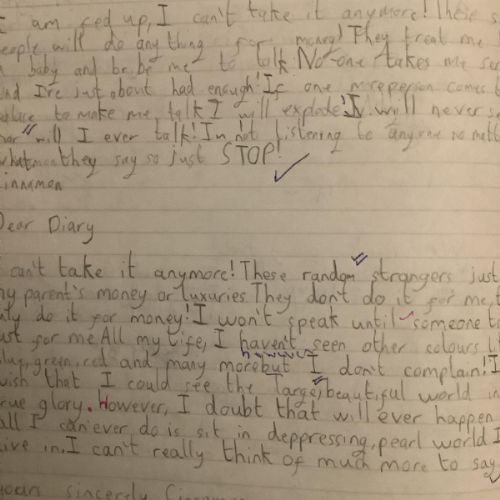 I am fed up, I can't take it anymore! These s
people will do anything for money! They treat me
a baby and bribe me to talk No-one takes me se
and I've just about had enough! If one more person comes t
place to make me talk I will explode! I will never s
nor will I ever talk! I'm not listening to anyone no matt
what they say so just STOP!
Cinnamon
Dear Diary
I can't take it anymore! These random strangers just
my parent's money or luxuries They don't do it for me,
only do it for money! I won't speak until someone t
just for me All my life, I haven't seen other colours l
blue, green, red and many more but I don't complain! I
wish that I could see the large, beautiful world in
true glory. However, I doubt that will ever happen
all I can ever do is sit in deppressing, pearl world I
live in. I can't really think of much more to say
sincerely Cinnamon